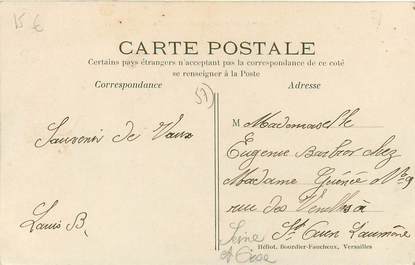 15 €
CARTE POSTALE
Certains pays étrangers n'acceptant pas la correspondance de ce coté
se renseigner à la Poste
Correspondance
Adresse
57
Souvenir de Vaux
Louis B.
M Mademoiselle
Eugenie Barbror chez
Madame Guénée N° 9
rue des
St Ouen L'aumône
Seine
et Oise
Héliot. Bourdier-Faucheux, Versailles